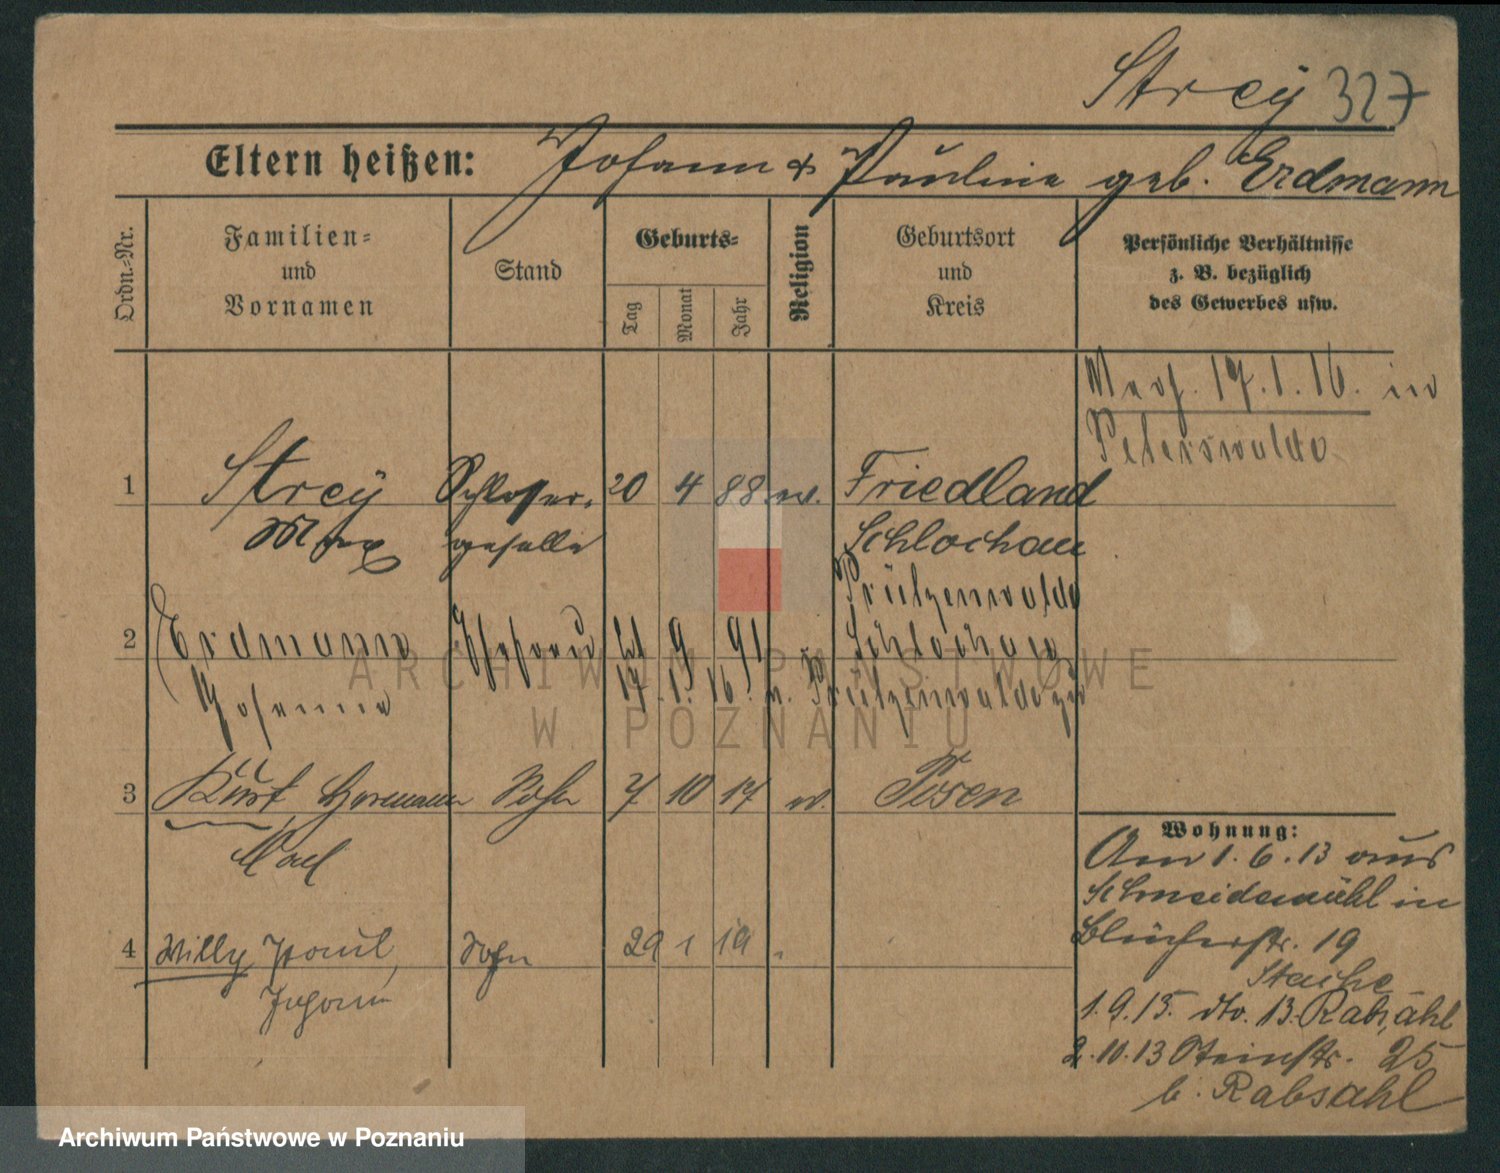 Strey 327
Eltern heißen: Johann & Pauline geb. Erdmann
Ordn.-Nr.
Familien-
und
Vornamen
Stand
Geburts-
Tag
Monat
Jahr
Religion
Geburtsort
und
Kreis
Persönliche Verhältnisse
z. B. bezüglich
des Gewerbes usw.
17.1.16. in
Peterswalde
1 Strey Schlosser- 20 4 88 ev. Friedland
Max geselle Schlochau
2 Erdmann Ehefrau 9 91 Schlochau
17. 1. 16.
3 Kurt Hermann Sohn 7 10 17 ev. Posen
4 Willy Paul Sohn 29 1 19 "
Johann
Wohnung:
Am 1.6.13 aus
Schneidemühl in
Blücherstr. 19
1.9.13. dto. 13. Rabsahl
2.10.13 Steinstr. 25
b. Rabsahl
ARCHIWUM PAŃSTWOWE
W POZNANIU
Archiwum Państwowe w Poznaniu